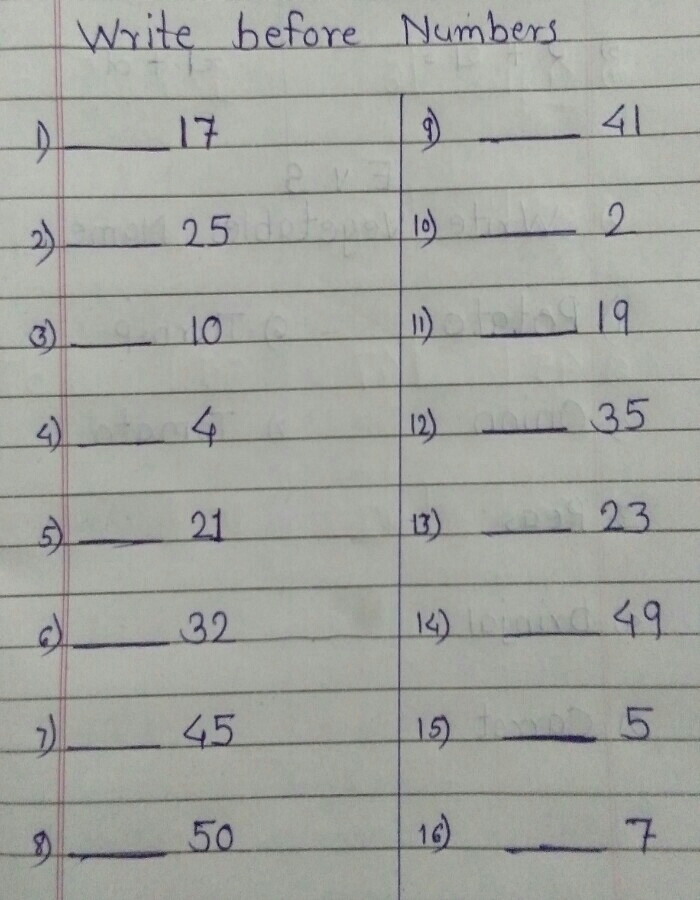 Write before Numbers
1) ____ 17
2) ____ 25
3) ____ 10
4) ____ 4
5) ____ 21
6) ____ 32
7) ____ 45
8) ____ 50
9) ____ 41
10) ____ 2
11) ____ 19
12) ____ 35
13) ____ 23
14) ____ 49
15) ____ 5
16) ____ 7